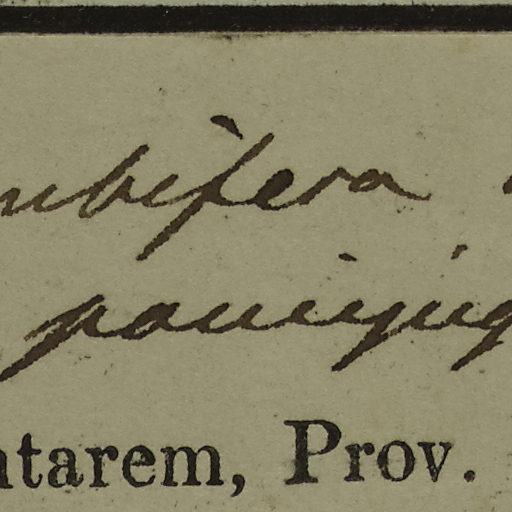 ubifera
paucijug
ntarem, Prov.